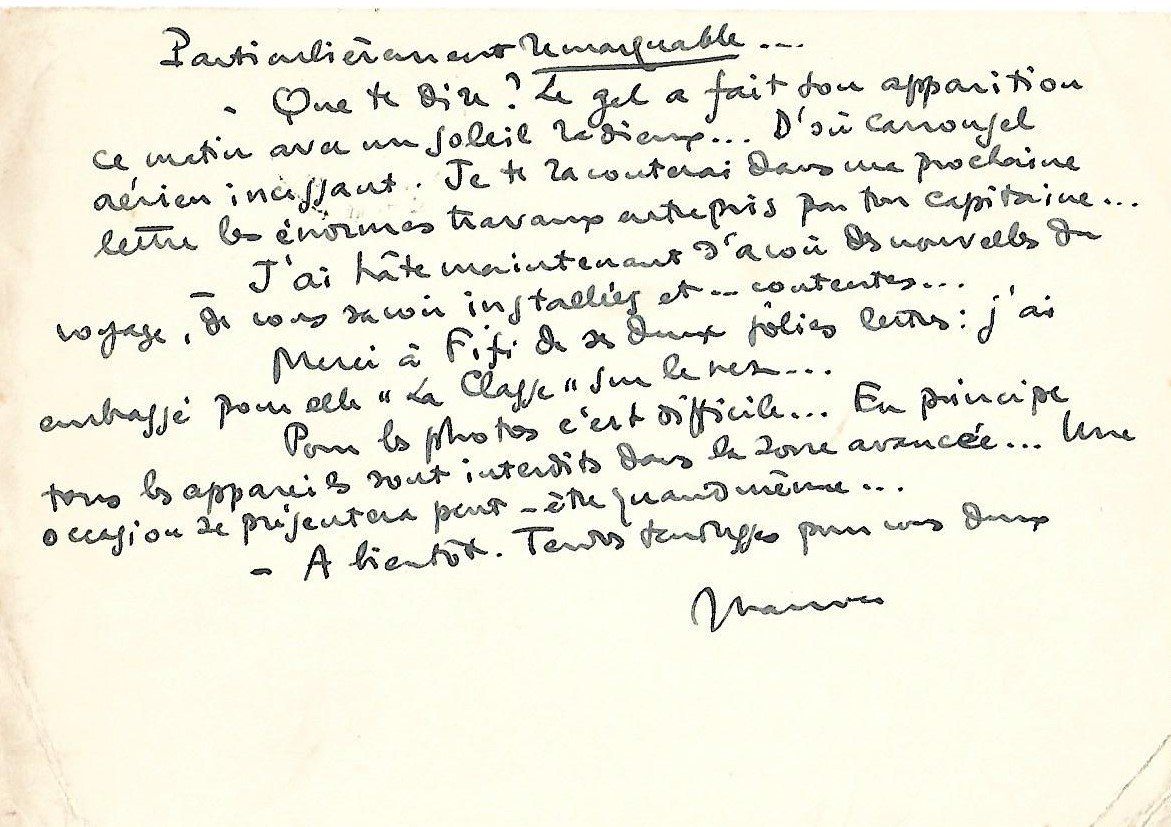 Particulièrement remarquable...
- Que te dire ? Le gel a fait son apparition
ce matin avec un soleil radieux... D'où carrousel
aérien incessant. Je te raconterai dans une prochaine
lettre les énormes travaux entrepris par ton capitaine...
- J'ai hâte maintenant d'avoir des nouvelles du
voyage, de vous savoir installées et... contentes...
Merci à Fifi de ses deux jolies lettres : j'ai
embrassé pour elle "La Classe" sur le nez...
Pour les photos c'est difficile... En principe
tous les appareils sont interdits dans la zone avancée... Une
occasion se présentera peut-être quand même...
- A bientôt. Tendres tendresses pour vous deux